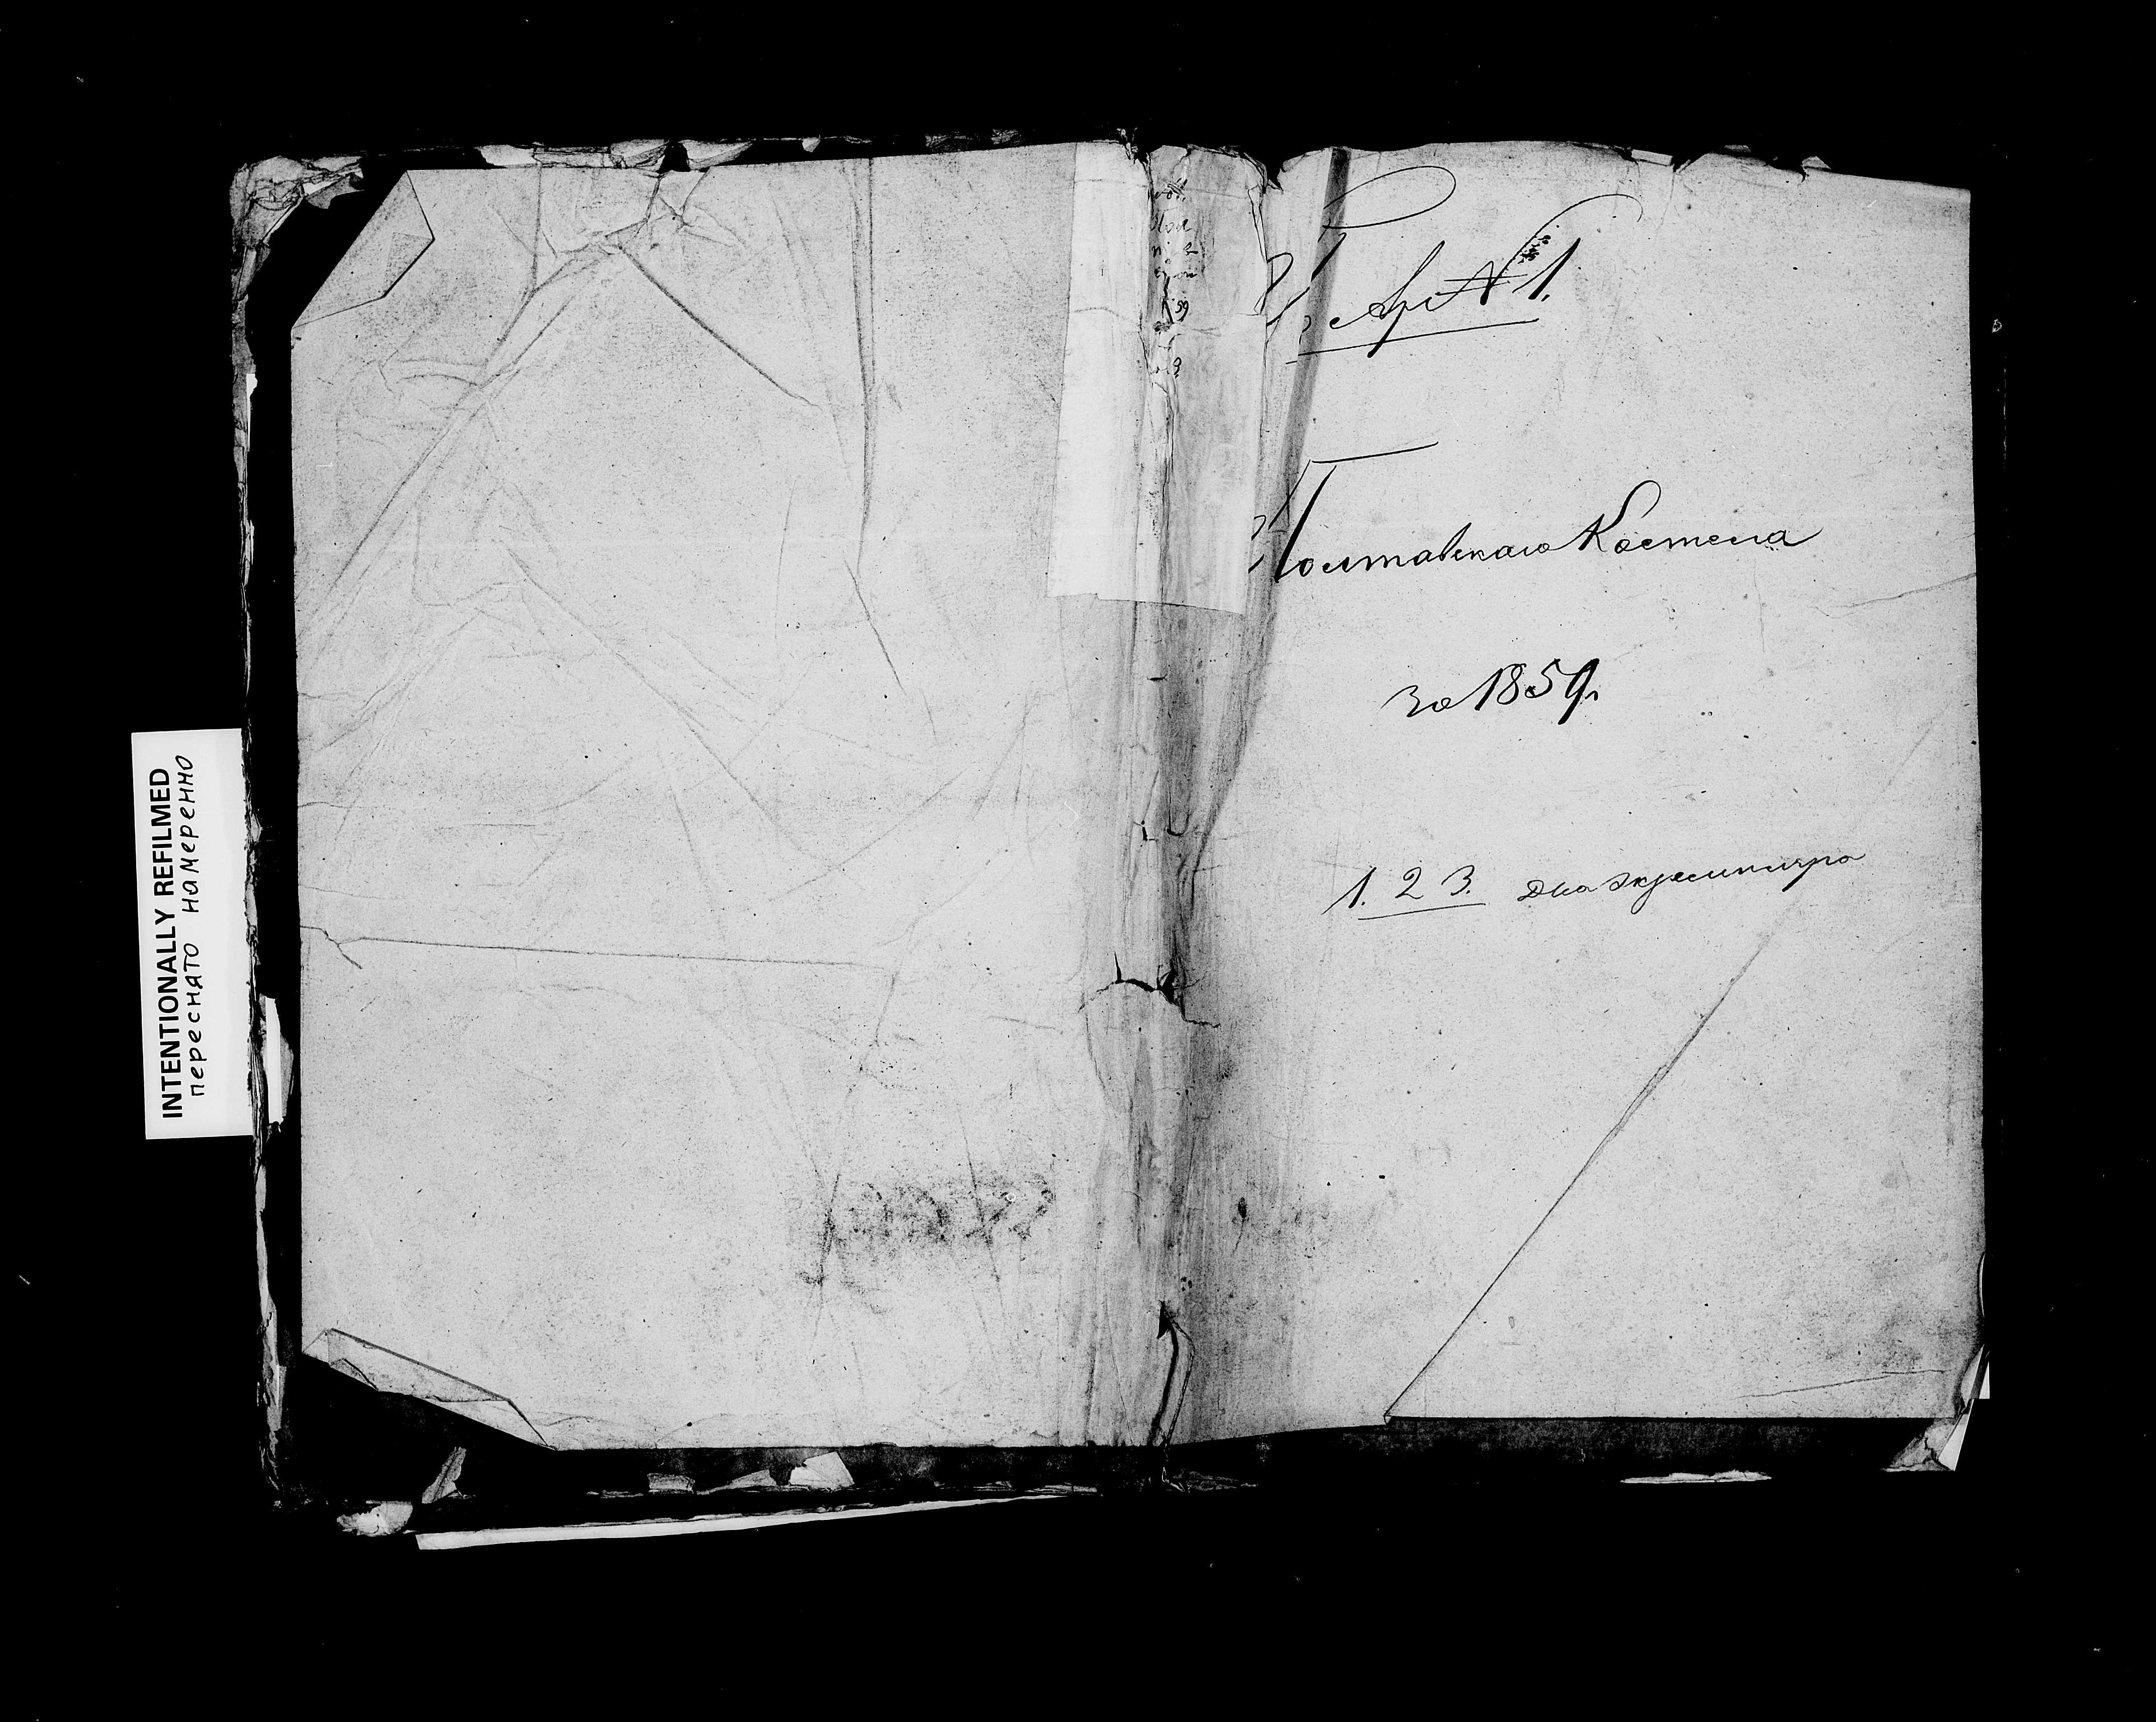 INTENTIONALLY REFILMED
переснято намеренно
№ 1.
Полтавского Костела
за 1859 г.
1. 2 3. два экземпляра